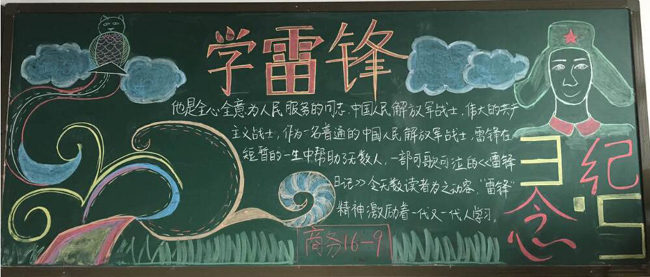 学雷锋
他是全心全意为人民服务的同志,中国人民解放军战士,伟大的共产
主义战士,作为一名普通的中国人民解放军战士,雷锋在
短暂的一生中帮助了无数人,一部可歌可泣的<<雷锋
日记>>令无数读者为之动容,"雷锋"
精神激励着一代又一代人学习。
商务16-9
纪念日